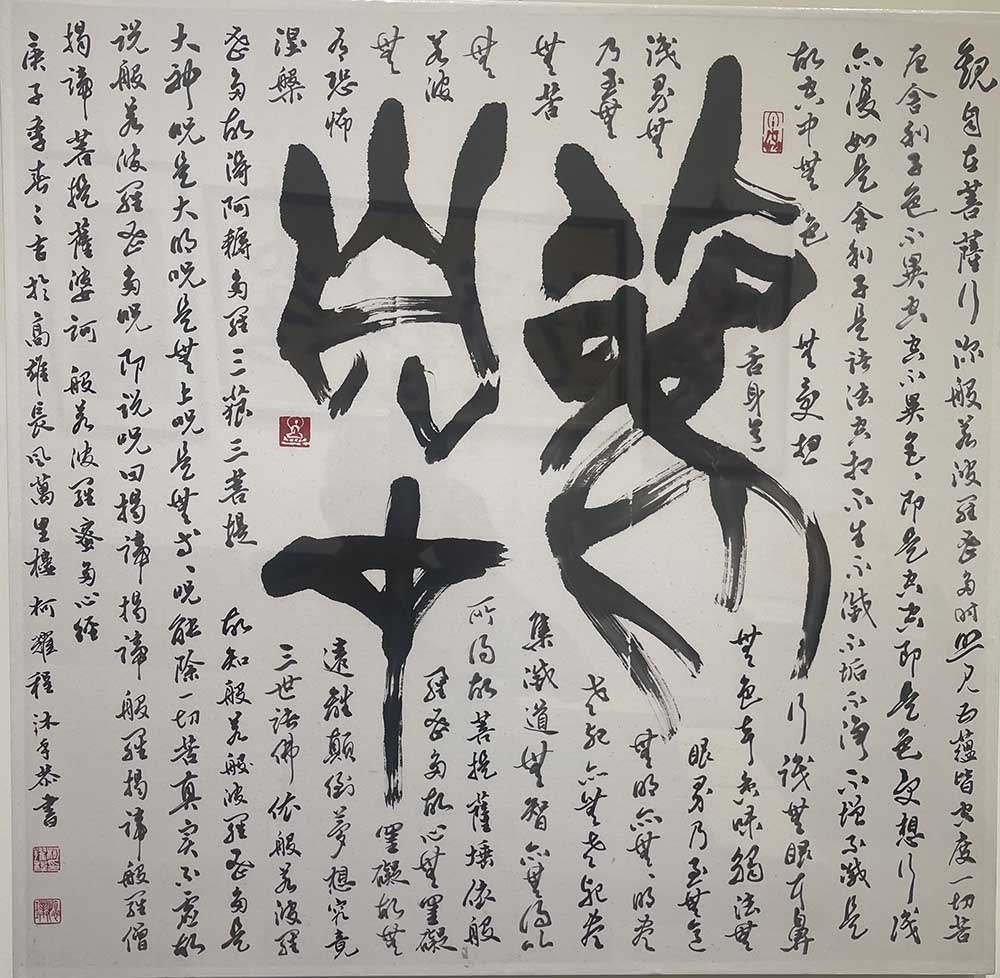 觀自在菩薩行深般若波羅蜜多時照見五蘊皆空度一切苦
厄舍利子色不異空空不異色、即是空空即是色受想行識
亦復如是舍利子是諸法空相不生不滅不垢不淨不增不減是
故空中無色 無受想 行識無眼耳鼻
舌身意 無色聲香味觸法無
眼界乃至無意
識界無 無明亦無、明盡
乃至無 老死亦無老死盡
無苦 集滅道無智亦無得以
無 所得故菩提薩埵依般
若波 羅蜜多故心無罣礙
無 罣礙故無
有恐怖 遠離顛倒夢想究竟
涅槃 三世諸佛依般若波羅
蜜多故得阿耨多羅三藐三菩提 故知般若般波羅蜜多是
大神咒是大明咒是無上咒是無等、咒能除一切苦真實不虛故
說般若波羅蜜多咒即說咒曰揭諦揭諦般羅揭諦般羅僧
揭諦菩提薩婆訶 般若波羅蜜多心經
庚子季春之吉於高雄長風萬里樓柯耀程沐手恭書